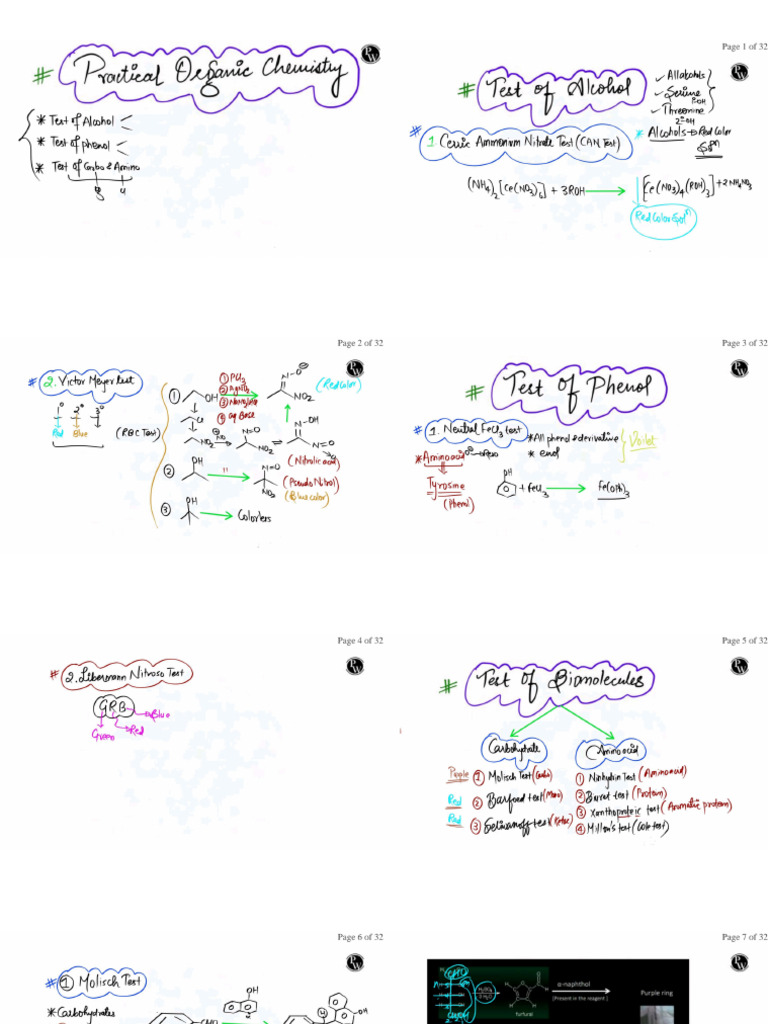 Page 1 of 32
# Practical Organic Chemistry
* Test of Alcohol
* Test of phenol
* Test of Carbo & Amino
# Test of Alcohol
All alcohols
Serine
1°OH
Threonine
2°OH
# 1 Cerric Ammonium Nitrate Test (CAN Test)
* Alcohols → Red Color
(NH4)2[Ce(NO3)6] + 3ROH → [Ce(NO3)4(ROH)3] + 2NH4NO3
Page 2 of 32
# 2. Victor Meyer test
1° 2° 3°
Red Blue
(RBC Test)
1 OH
① PCl3
② AgNO2
④ aq Base
N-O⊖
NO2
(Red Color)
NO2
N=O
NO2
N-OH
N=O
(Nitrolic acid)
2 OH
"
N=O
NO2
(Pseudo Nitrol)
(Blue color)
3 OH
Colorless
Page 3 of 32
# Test Of Phenol
# 1. Neutral FeCl3 test
* All phenol & derivative
* enol
Violet
* Amino acid
Tyrosine
(Phenol)
OH
+ FeCl3 → Fe(OPh)3
Page 4 of 32
# 2. Libermann Nitroso Test
GRB
Blue
Red
Green
Page 5 of 32
# Test Of Biomolecules
Carbohydrate
Amino acid
Purple 1 Molisch Test (Carbo)
Red 2 Barfoed test (Mono)
Red 3 Seliwanoff test
1 Ninhydrin Test (Amino acid)
2 Biuret test (Protein)
3 Xanthoproteic test (Aromatic protein)
4 Millon's test
Page 6 of 32
# 1 Molisch Test
* Carbohydrates
OH
CHO
OH
Page 7 of 32
CHO
H2SO4
3 H2O
furfural
α-naphthol
(Present in the reagent)
Purple ring